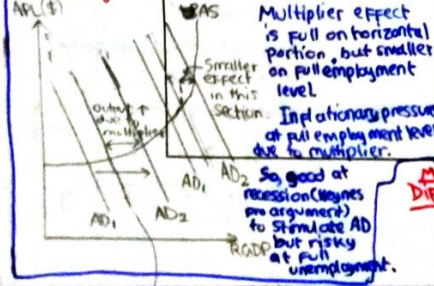 APL($)
RAS
Smaller
effect
in this
section.
Output ↑
due to
multiplier
AD1
AD2
AD1
AD2
RGDP
Multiplier effect
is full on horizontal
portion, but smaller
on full employment
level.
Inflationary pressure
at full employment level
due to multiplier.
So, good at
recession (Keynes
pro argument)
to stimulate AD
but risky
at full
unemployment.